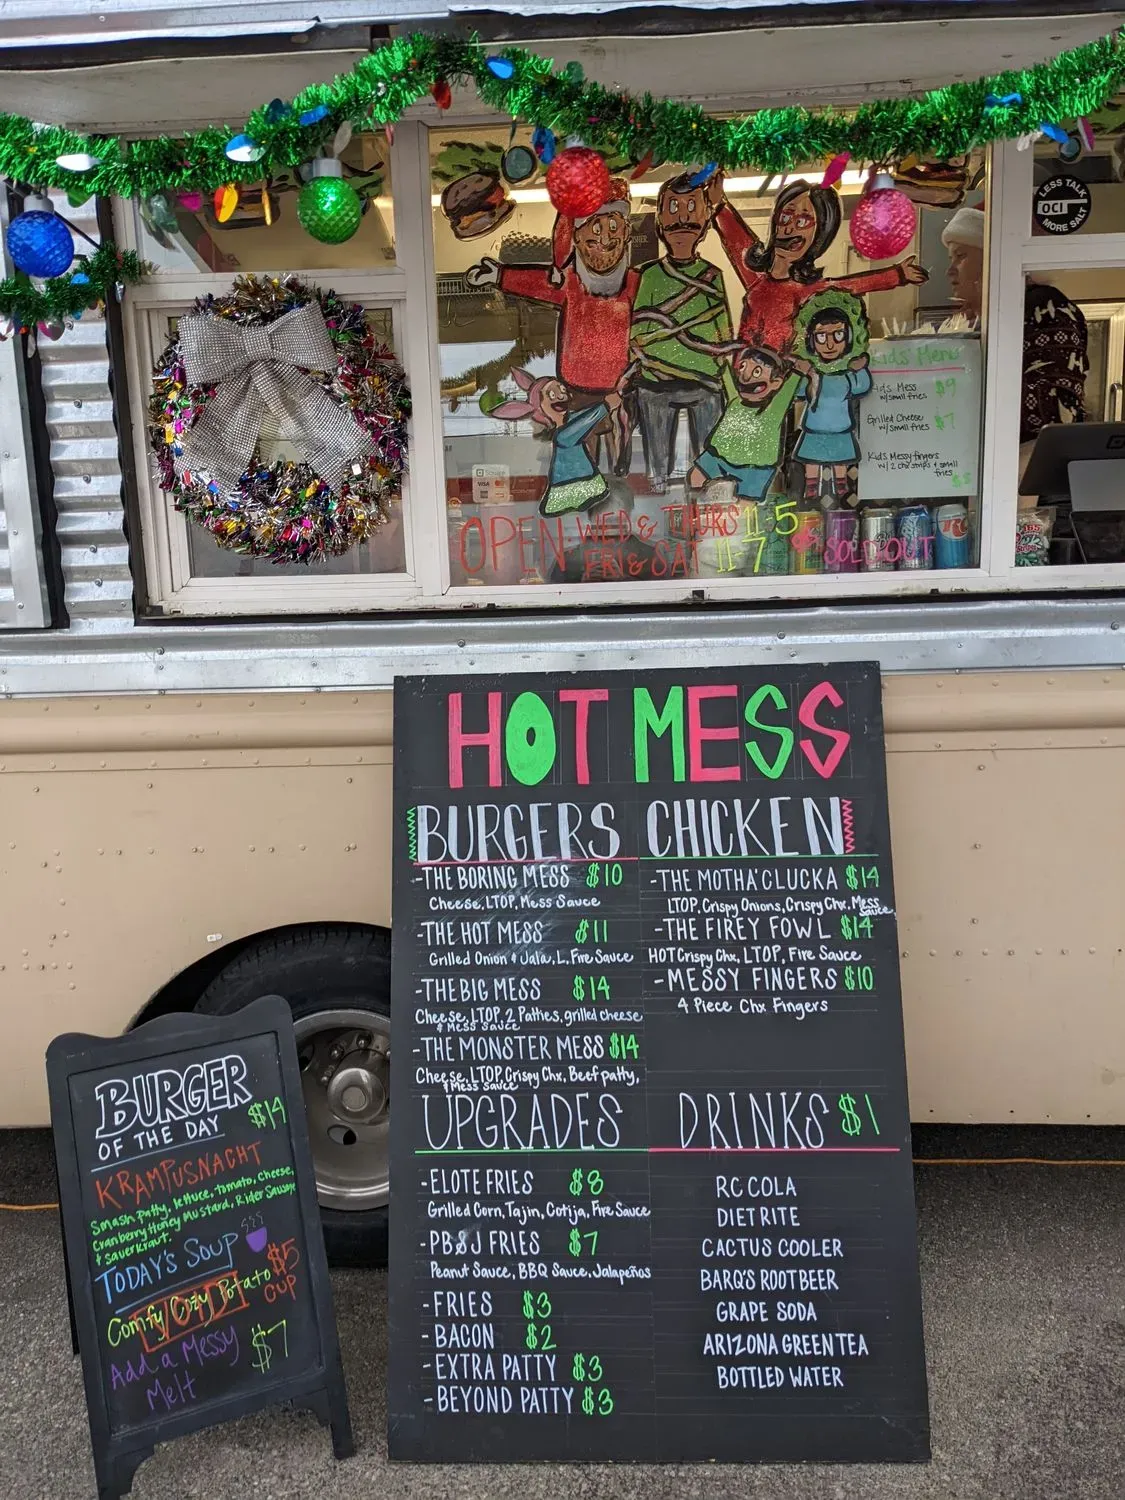 LESS TALK
OCI
MORE SALT
Kids' Menu
Kids Mess $9
w/small fries
Grilled Cheese $7
w/small fries
Kids Messy fingers
w/ 2 chx strips & small
fries $8
Square
VISA
OPEN WED & THURS 11-5
FRI & SAT 11-7
SOLD OUT
RC
HOT MESS
BURGERS
-THE BORING MESS $10
Cheese, LTOP, Mess Sauce
-THE HOT MESS $11
Grilled Onion & Jala, L. Fire Sauce
-THE BIG MESS $14
Cheese, LTOP, 2 Patties, grilled cheese
& Mess Sauce
-THE MONSTER MESS $14
Cheese, LTOP, Crispy Chx, Beef patty,
& Mess Sauce
CHICKEN
-THE MOTHA' CLUCKA $14
LTOP, Crispy Onions, Crispy Chx, Mess
Sauce
-THE FIREY FOWL $14
HOT Crispy Chx, LTOP, Fire Sauce
-MESSY FINGERS $10
4 Piece Chx Fingers
UPGRADES
-ELOTE FRIES $8
Grilled Corn, Tajin, Cotija, Fire Sauce
-PB&J FRIES $7
Peanut Sauce, BBQ Sauce, Jalapeños
-FRIES $3
-BACON $2
-EXTRA PATTY $3
-BEYOND PATTY $3
DRINKS $1
RC COLA
DIET RITE
CACTUS COOLER
BARQ'S ROOT BEER
GRAPE SODA
ARIZONA GREEN TEA
BOTTLED WATER
BURGER
OF THE DAY $14
KRAMPUSNACHT
Smash patty, lettuce, tomato, cheese,
Cranberry Honey Mustard, Rider Sausage
& sauerkraut.
TODAY'S SOUP
Comfy Cozy Potato $5
CUP
Add a Messy $7
Melt